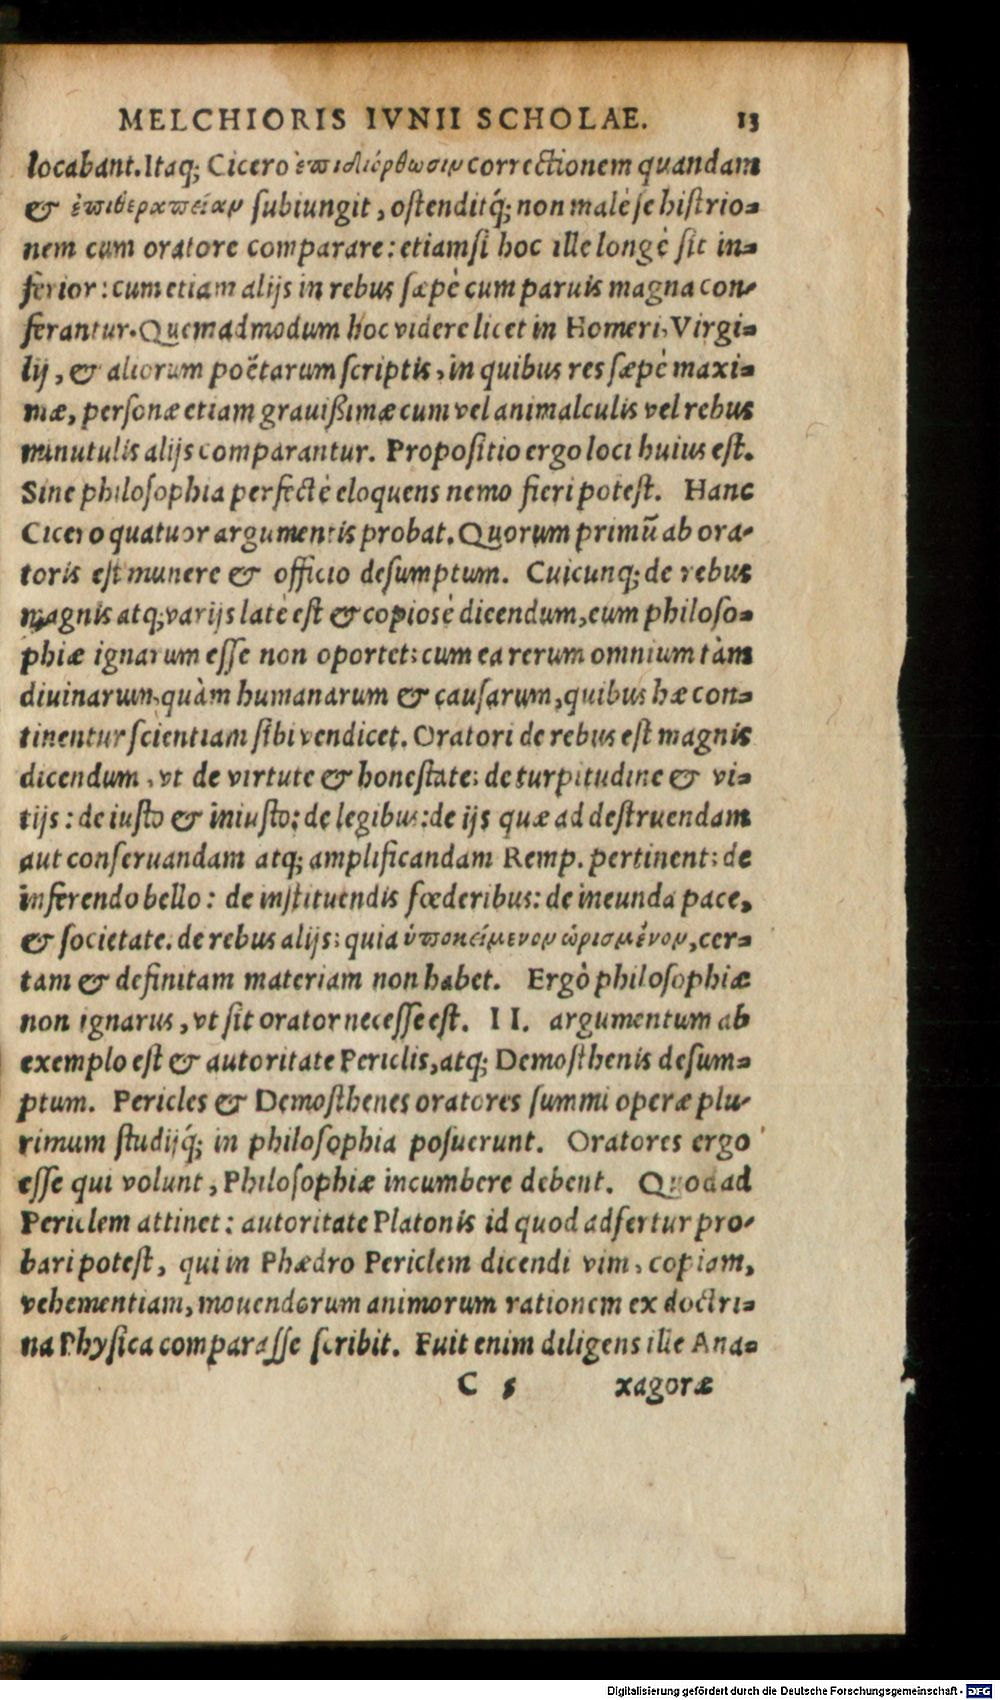 MELCHIORIS IVNII SCHOLAE. 13
locabant. Itaq; Cicero ἐπιδιόρθωσιν correctionem quandam
& ἐπιθεραπείαν subiungit, ostenditq́; non malè se histrio-
nem cum oratore comparare: etiamsi hoc ille longè sit in-
ferior: cum etiam alijs in rebus sæpè cum paruis magna con-
ferantur. Quemadmodum hoc videre licet in Homeri, Virgi-
lij, & aliorum poëtarum scriptis, in quibus res sæpè maxi-
mæ, personæ etiam grauißimæ cum vel animalculis vel rebus
minutulis alijs comparantur. Propositio ergo loci huius est.
Sine philosophia perfectè eloquens nemo fieri potest. Hanc
Cicero quatuor argumentis probat. Quorum primũ ab ora-
toris est munere & officio desumptum. Cuicunq; de rebus
magnis atq; varijs latè est & copiosè dicendum, eum philoso-
phiæ ignarum esse non oportet: cum ea rerum omnium tàm
diuinarum, quàm humanarum & causarum, quibus hæ con-
tinentur scientiam sibi vendicet. Oratori de rebus est magnis
dicendum, vt de virtute & honestate: de turpitudine & vi-
tijs: de iusto & iniusto: de legibus: de ijs quæ ad destruendam
aut conseruandam atq; amplificandam Remp. pertinent: de
inferendo bello: de instituendis fœderibus: de ineunda pace,
& societate. de rebus alijs: quia ὑποκείμενον ὡρισμένον, cer-
tam & definitam materiam non habet. Ergò philosophiæ
non ignarus, vt sit orator necesse est. II. argumentum ab
exemplo est & autoritate Periclis, atq; Demosthenis desum-
ptum. Pericles & Demosthenes oratores summi operæ plu-
rimum studijq́; in philosophia posuerunt. Oratores ergo
esse qui volunt, Philosophiæ incumbere debent. Quod ad
Periclem attinet: autoritate Platonis id quod adfertur pro-
bari potest, qui in Phædro Periclem dicendi vim, copiam,
vehementiam, mouendorum animorum rationem ex doctri-
na Physica comparasse scribit. Fuit enim diligens ille Ana-
C 5 xagoræ
Digitalisierung gefördert durch die Deutsche Forschungsgemeinschaft - DFG